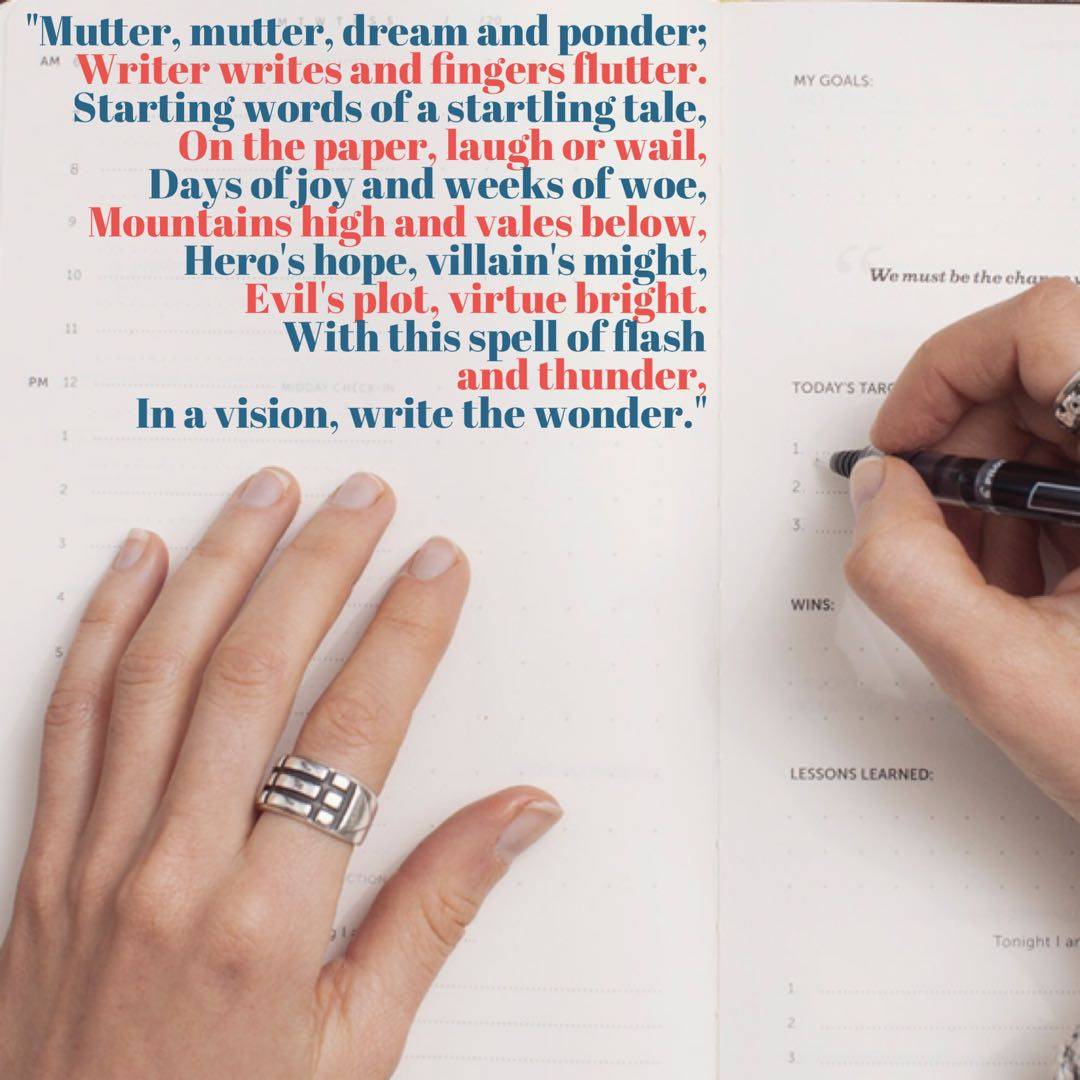 "Mutter, mutter, dream and ponder;
Writer writes and fingers flutter.
Starting words of a startling tale,
On the paper, laugh or wail,
Days of joy and weeks of woe,
Mountains high and vales below,
Hero's hope, villain's might,
Evil's plot, virtue bright.
With this spell of flash
and thunder,
In a vision, write the wonder."
M T W T F S S / /20
AM
8
9
10
11
PM 12
MIDDAY CHECK-IN
1
2
3
4
5
MY GOALS:
We must be the
TODAY'S
1.
2.
3.
WINS:
LESSONS LEARNED:
Tonight I
1.
2.
3.